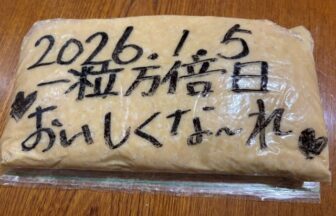 2026.1.5
一粒万倍日
おいしくな〜れ